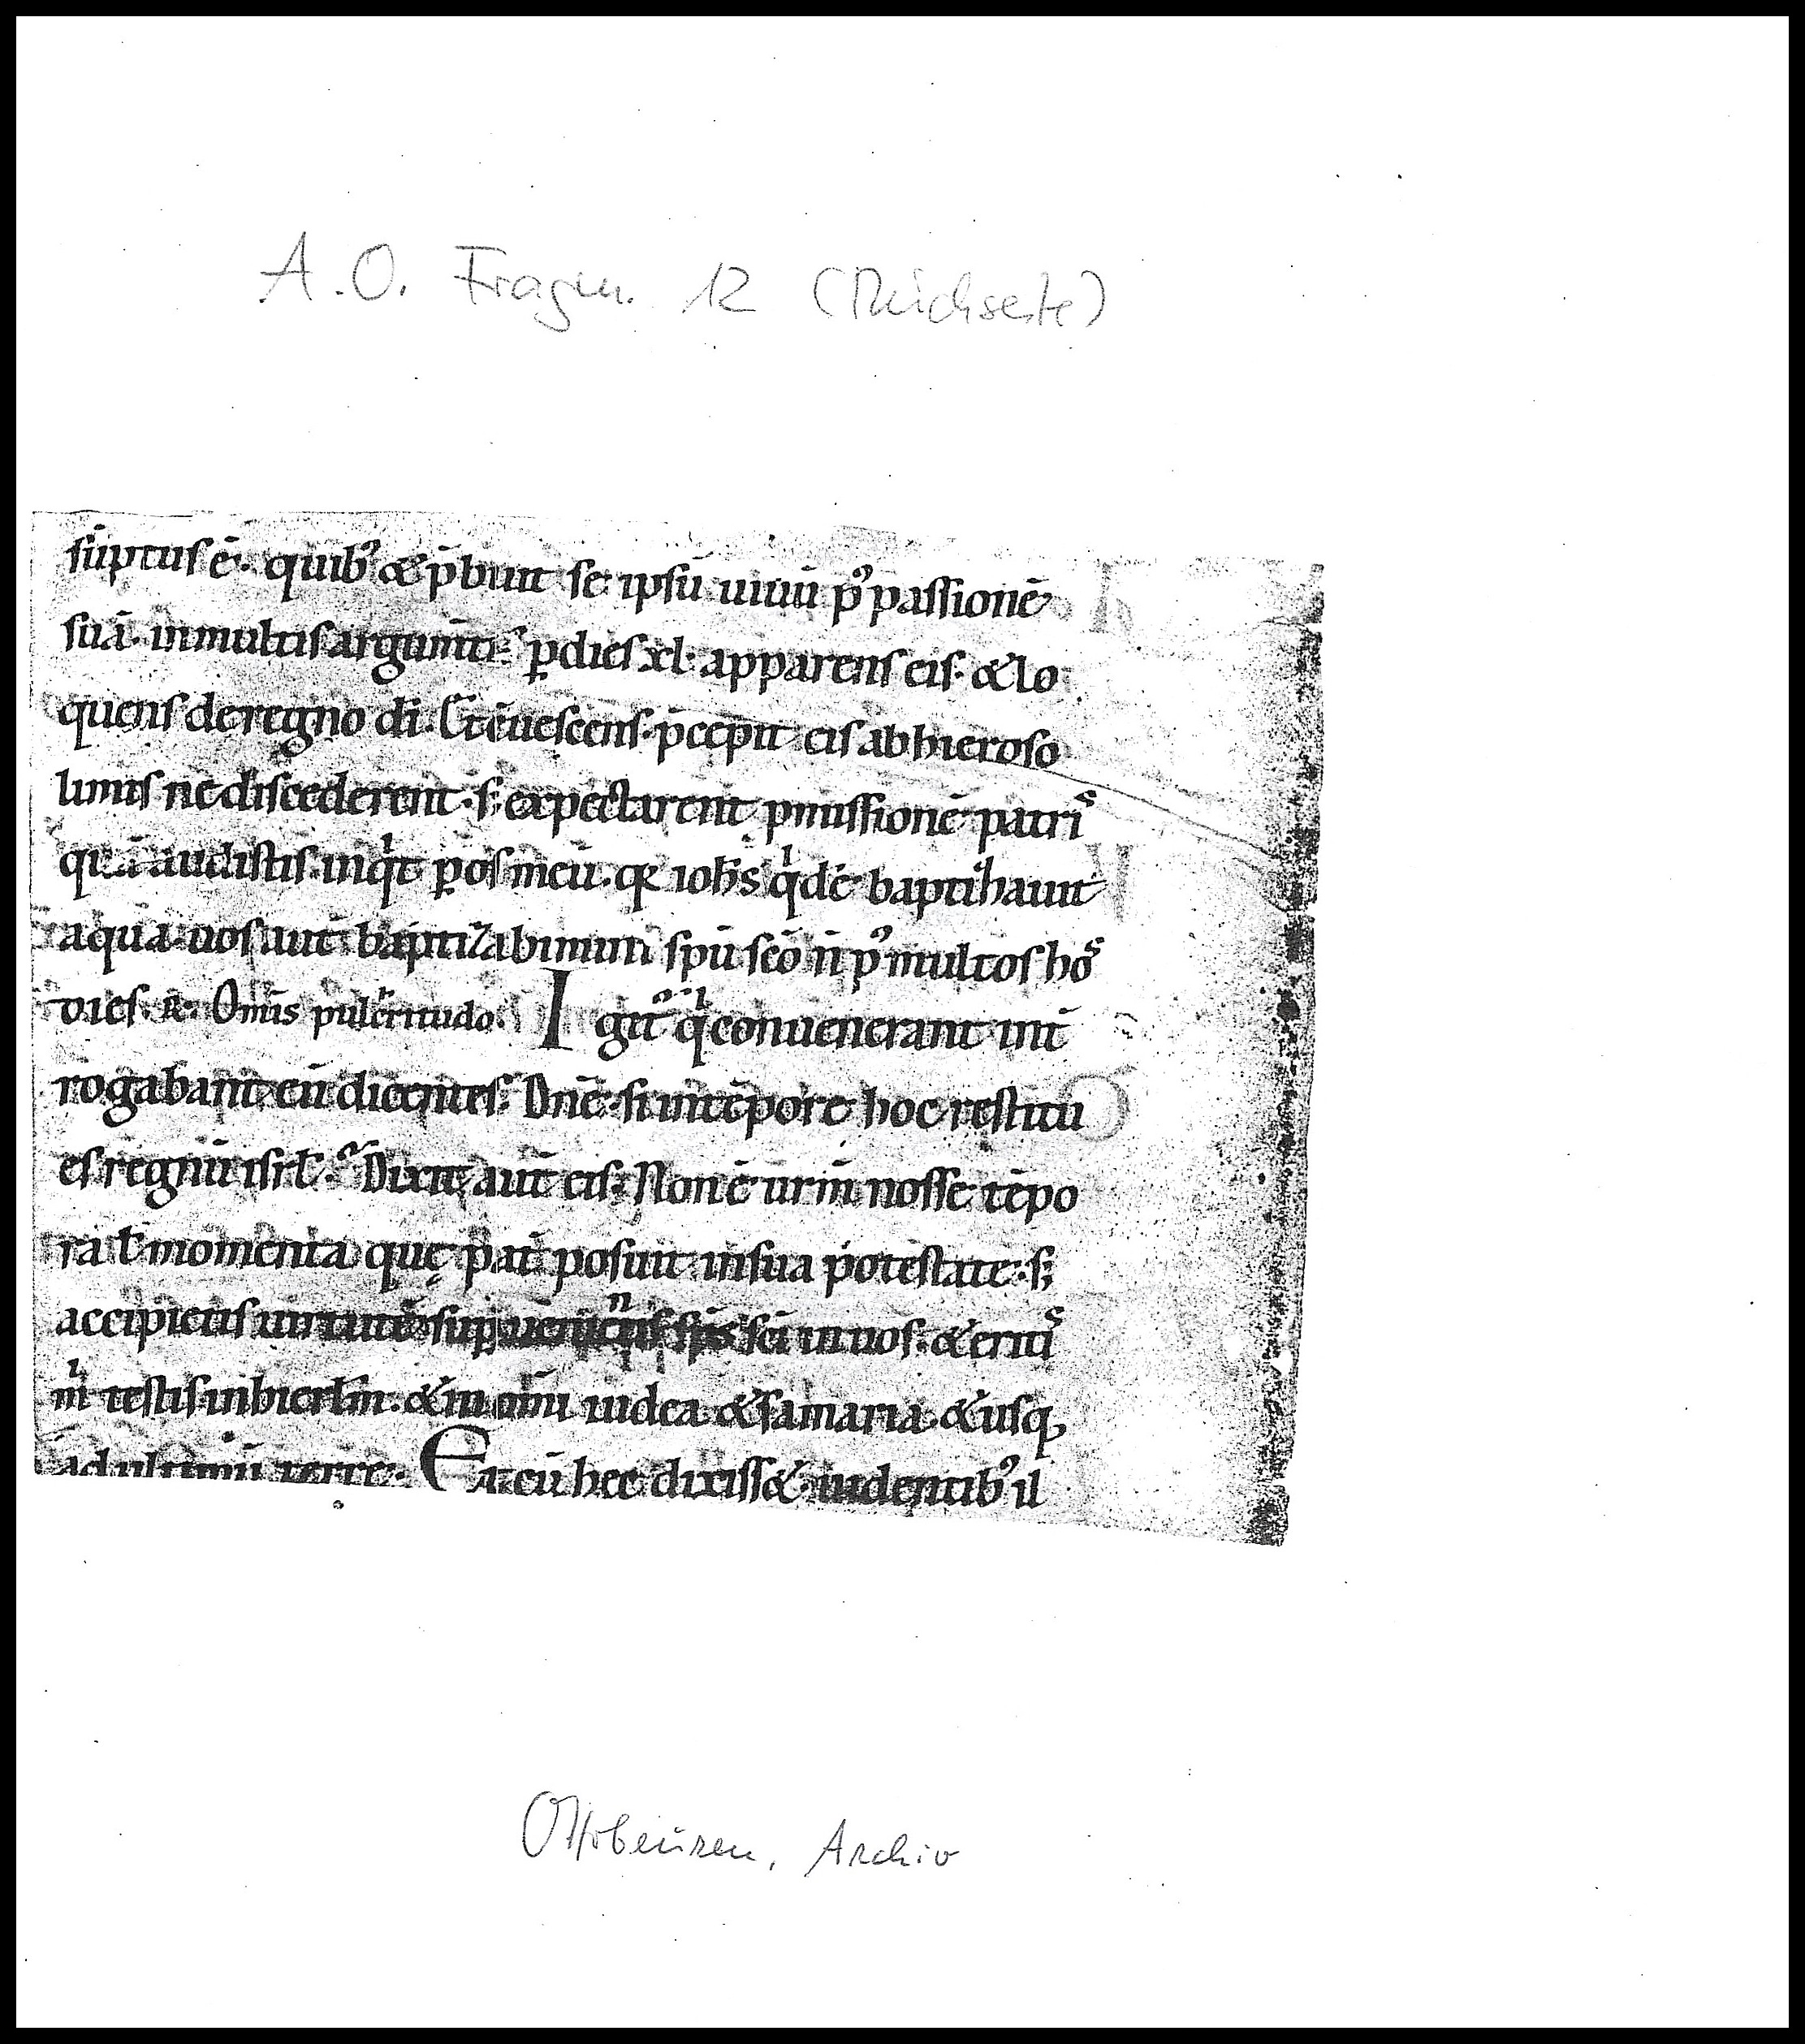 A.O. Fragm. 12 (Rückseite)
sūptus ē. quibꝰ & p̄buit se ipsū uiuū pꝰ passionē
suā. in multis argum̄tis ꝑ dies xl. apparens eis. & lo
quens de regno dī. Et c̄uescens. p̄cepit eis ab hieroso
limis ne discederent. s; expectarent pmissionē patris
quā audistis. inqͥt ꝑ os meū. qꝛ ioh̄s qͥdē baptizauit
aqua. uos aut̄ baptizabimini sp̄u sc̄o n̄ pꝰ multos hos
dies. R. Om̄is pulcritudo. Igit̄ qͥ conuenerant int̄
rogabant eū dicentes. Dn̄e. si in tēpore hoc restitu
es regnū isrl̄. Dixit aut̄ eis. Non ē ur̄m nosse tēpo
ra ł momenta quę pat̄ posuit in sua potestate. s;
accipietis uirtutē suꝑuenientis sp̄s sc̄i in uos. & eritis
mͥ testis in hierl̄m. & in om̄i iudea & samaria. & usqꝫ
ad ultimū terre. Et cū hec dixiss&. uidentibꝰ il
Ottobeuren, Archiv